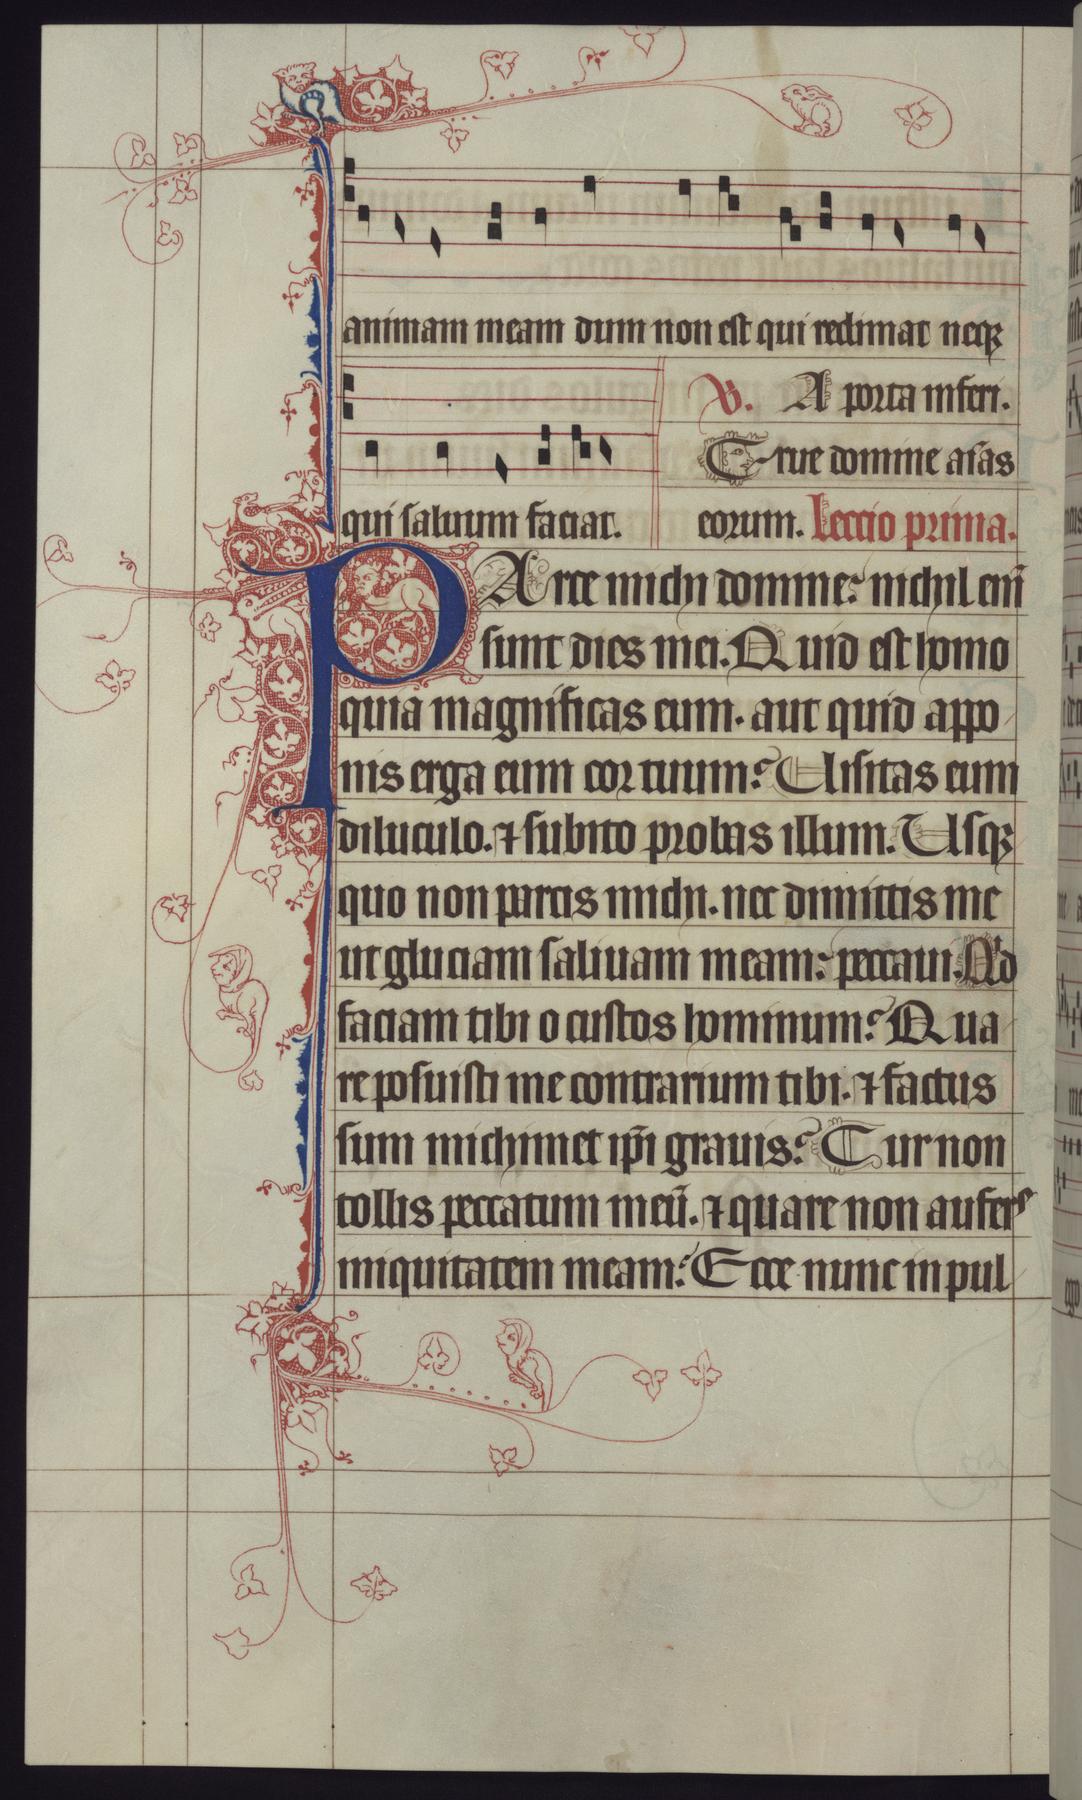 animam meam dum non est qui redimat neqꝫ
V. A porta inferi.
Erue domine aīas
qui saluum faciat. eorum. Leccio prima.
PArce michi domine: nichil enī
sunt dies mei. Quid est homo
quia magnificas eum. aut quid appo
nis erga eum cor tuum? Uisitas eum
diluculo. ⁊ subito probas illum. Usqꝫ
quo non parcis michi. nec dimittis me
ut gluciam saliuam meam: peccaui. Qͥd
faciam tibi o custos hominum? Qua
re posuisti me contrarium tibi. ⁊ factus
sum michimet ip̄i grauis? Cur non
tollis peccatum meū. ⁊ quare non aufers
iniquitatem meam? Ecce nunc in pul